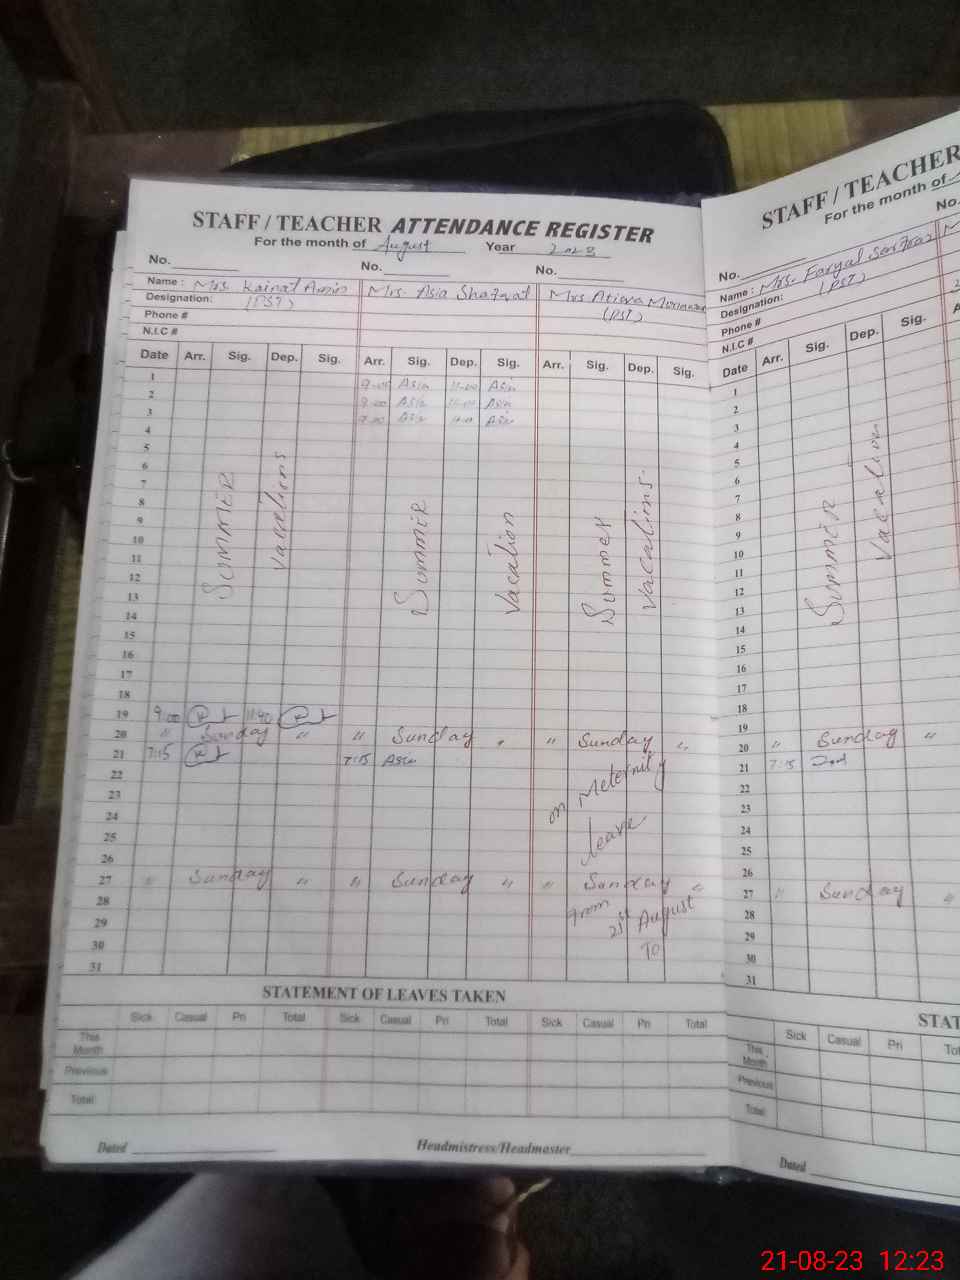 STAFF / TEACHER ATTENDANCE REGISTER
For the month of August Year 2023
No. No. No.
Name : Mrs. Kainat Amin Mrs. Asia Shafqat Mrs Atiqva
Designation: (PST) (PST)
Phone #
N.I.C #
Date Arr. Sig. Dep. Sig. Arr. Sig. Dep. Sig. Arr. Sig. Dep. Sig.
1 9:00 Asia 11:00 Asia
2 9:00 Asia 11:00 Asia
3 Asia Asia
4
5
6
7
8
9
10
11
12
13
14
15
16
17
18
SUMMER vacations
Summer Vacation
Summer vacations
19 9:00 11:40
20 " Sunday " " Sunday " " Sunday "
21 7:15 7:15 Asia
22
23
24
25
26
on Meternity
leave
27 " Sunday " " Sunday " " Sunday "
28
29
30
31
From
21st August
To
STATEMENT OF LEAVES TAKEN
Sick Casual Pri Total Sick Casual Pri Total Sick Casual Pri Total
This Month
Previous
Total
Dated Headmistress/Headmaster
STAFF / TEACHER
For the month of
No. No.
Name : Mrs. Faryal
Designation: (PST)
Phone #
N.I.C #
Date Arr. Sig. Dep. Sig.
1
2
3
4
5
6
7
8
9
10
11
12
13
14
15
16
17
18
Summer Vacation
19
20 " Sunday "
21 7:15
22
23
24
25
26
27 " Sunday "
28
29
30
31
STAT
Sick Casual Pri
This Month
Previous
Total
Dated
21-08-23 12:23